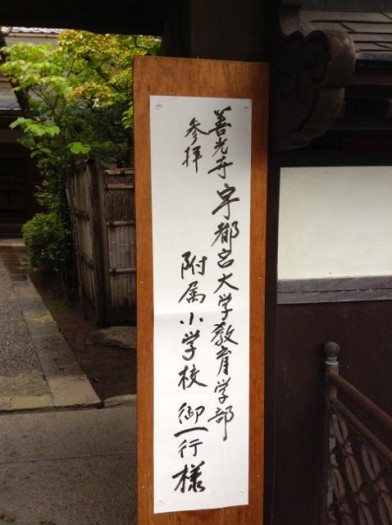 善光寺
参拝
宇都宮大学教育学部
附属小学校 御一行様